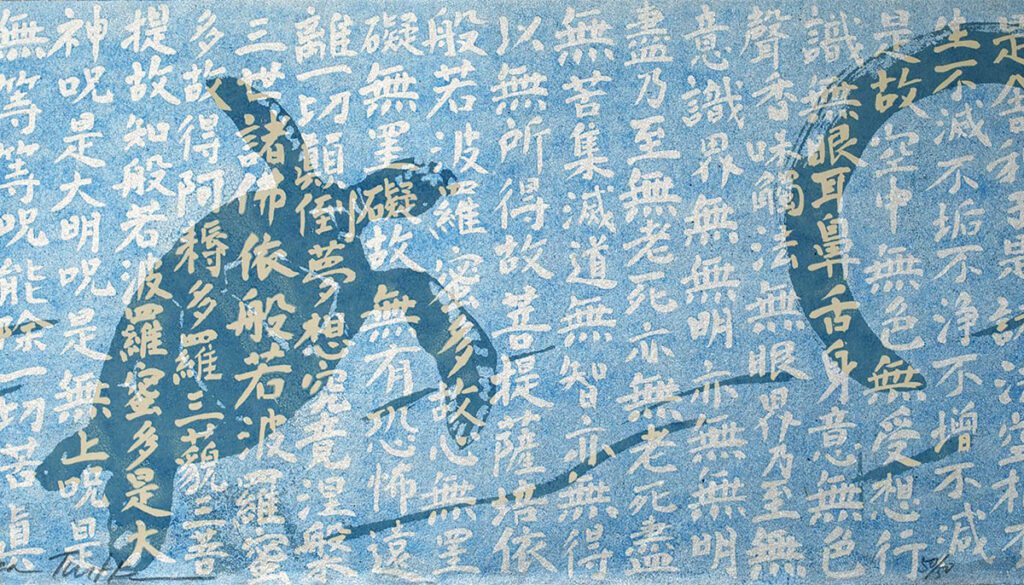 是舍利子是諸法空相不
生不滅不垢不淨不增不減
是故空中無色無受想行
識無眼耳鼻舌身意無色
聲香味觸法無眼界乃至無
意識界無無明亦無無明
盡乃至無老死亦無老死盡
無苦集滅道無智亦無得
以無所得故菩提薩埵依
般若波羅蜜多故心無罣
礙無罣礙故無有恐怖遠
離一切顛倒夢想究竟涅槃
三世諸佛依般若波羅蜜
多故得阿耨多羅三藐三菩
提故知般若波羅蜜多是大
神呪是大明呪是無上呪是
無等等呪能除一切苦真